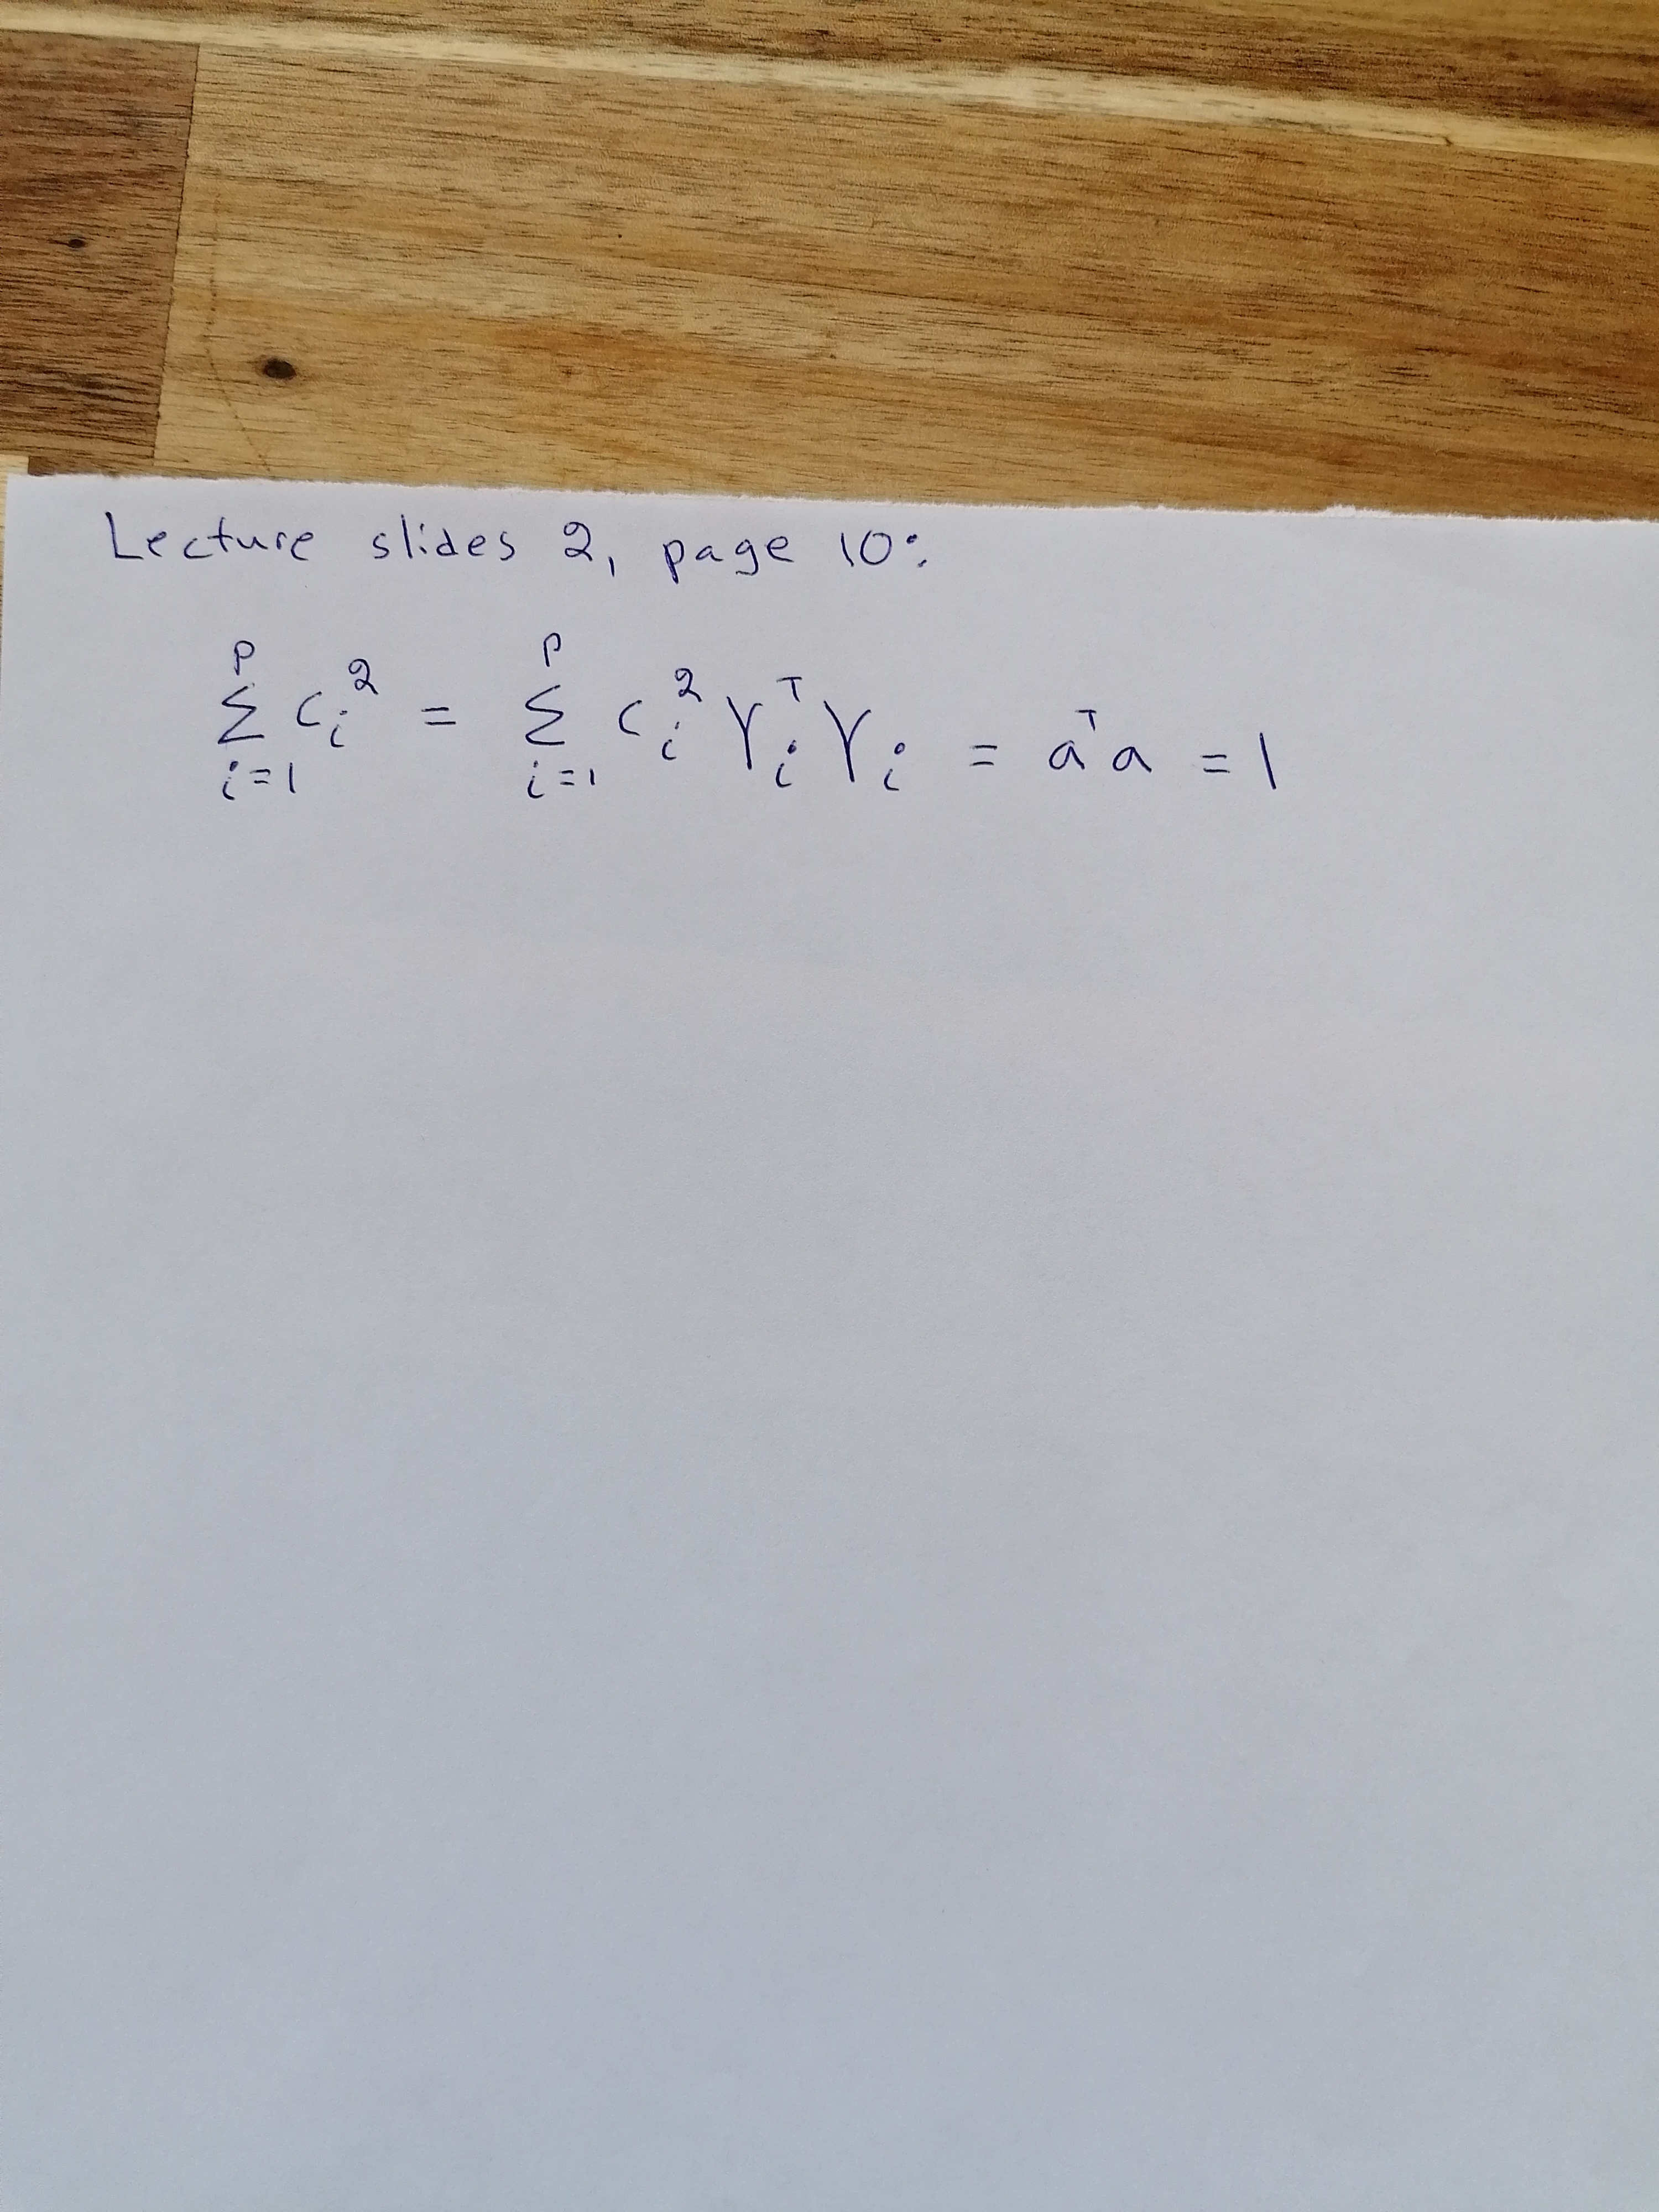 Lecture slides 2, page 10:
$\sum_{i=1}^{p} c_i^2 = \sum_{i=1}^{p} c_i^2 \gamma_i^T \gamma_i = a^T a = 1$